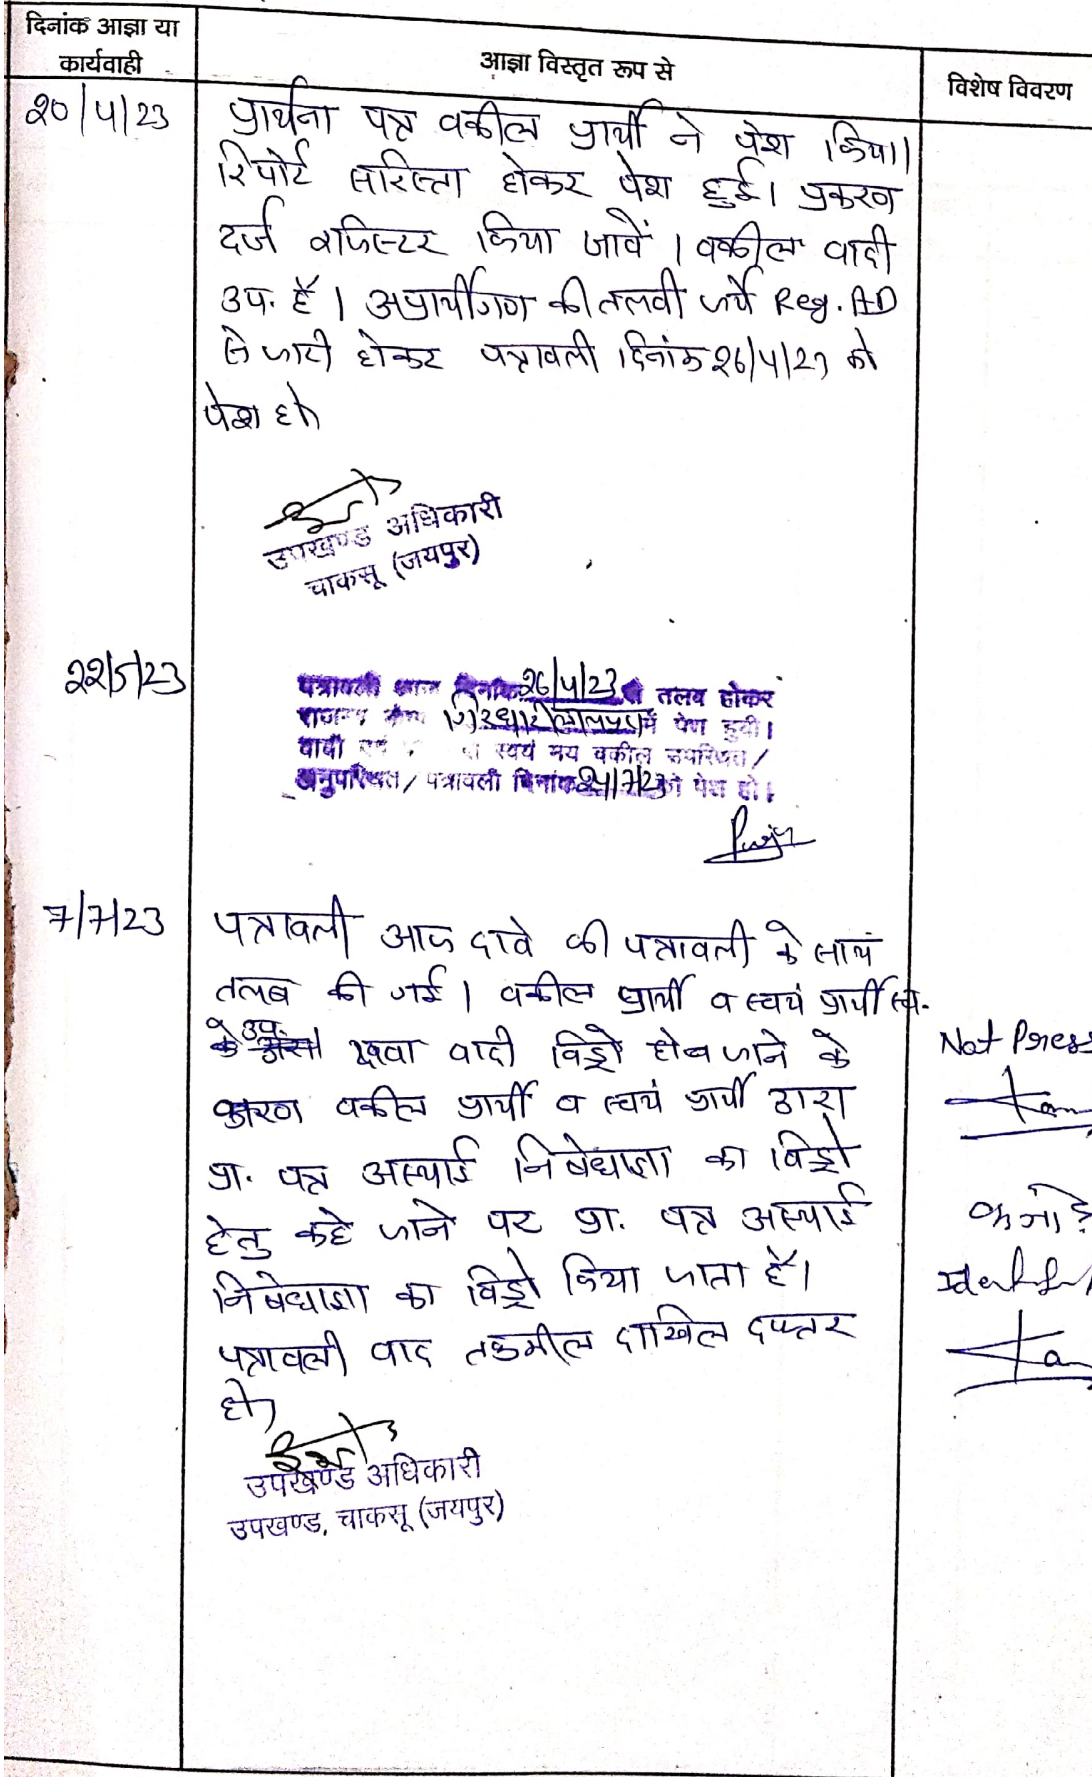 दिनांक आज्ञा या
कार्यवाही
आज्ञा विस्तृत रूप से
विशेष विवरण
20/4/23
प्रार्थना पत्र वकील प्रार्थी ने पेश किया।
रिपोर्ट सरिस्ता होकर पेश हुई। प्रकरण
दर्ज रजिस्टर किया जावें। वकील वादी
उप. है। अप्रार्थीगण की तलवी जर्ये Reg. AD
से जारी होकर पत्रावली दिनांक 26/4/23 को
पेश हो
उपखण्ड अधिकारी
चाकसू (जयपुर)
22/5/23
पत्रावली दिनांक 26/4/23 तलब होकर
में पेश हुयी।
स्वयं मय वकील उपस्थित/
अनुपस्थित/ पत्रावली दिनांक 24/7/23 को पेश हो।
7/7/23
पत्रावली आज दावे की पत्रावली के साथ
तलब की गई। वकील प्रार्थी व स्वयं प्रार्थी
उप. वादी विड्रो होन जाने के
कारण वकील प्रार्थी व स्वयं प्रार्थी द्वारा
प्रा. पत्र अस्थाई निषेधाज्ञा का विड्रो
हेतु कहे जाने पर प्रा. पत्र अस्थाई
निषेधाज्ञा का विड्रो किया जाता है।
पत्रावली वाद तकमील दाखिल दफ्तर
हो
उपखण्ड अधिकारी
उपखण्ड, चाकसू (जयपुर)
Not Press